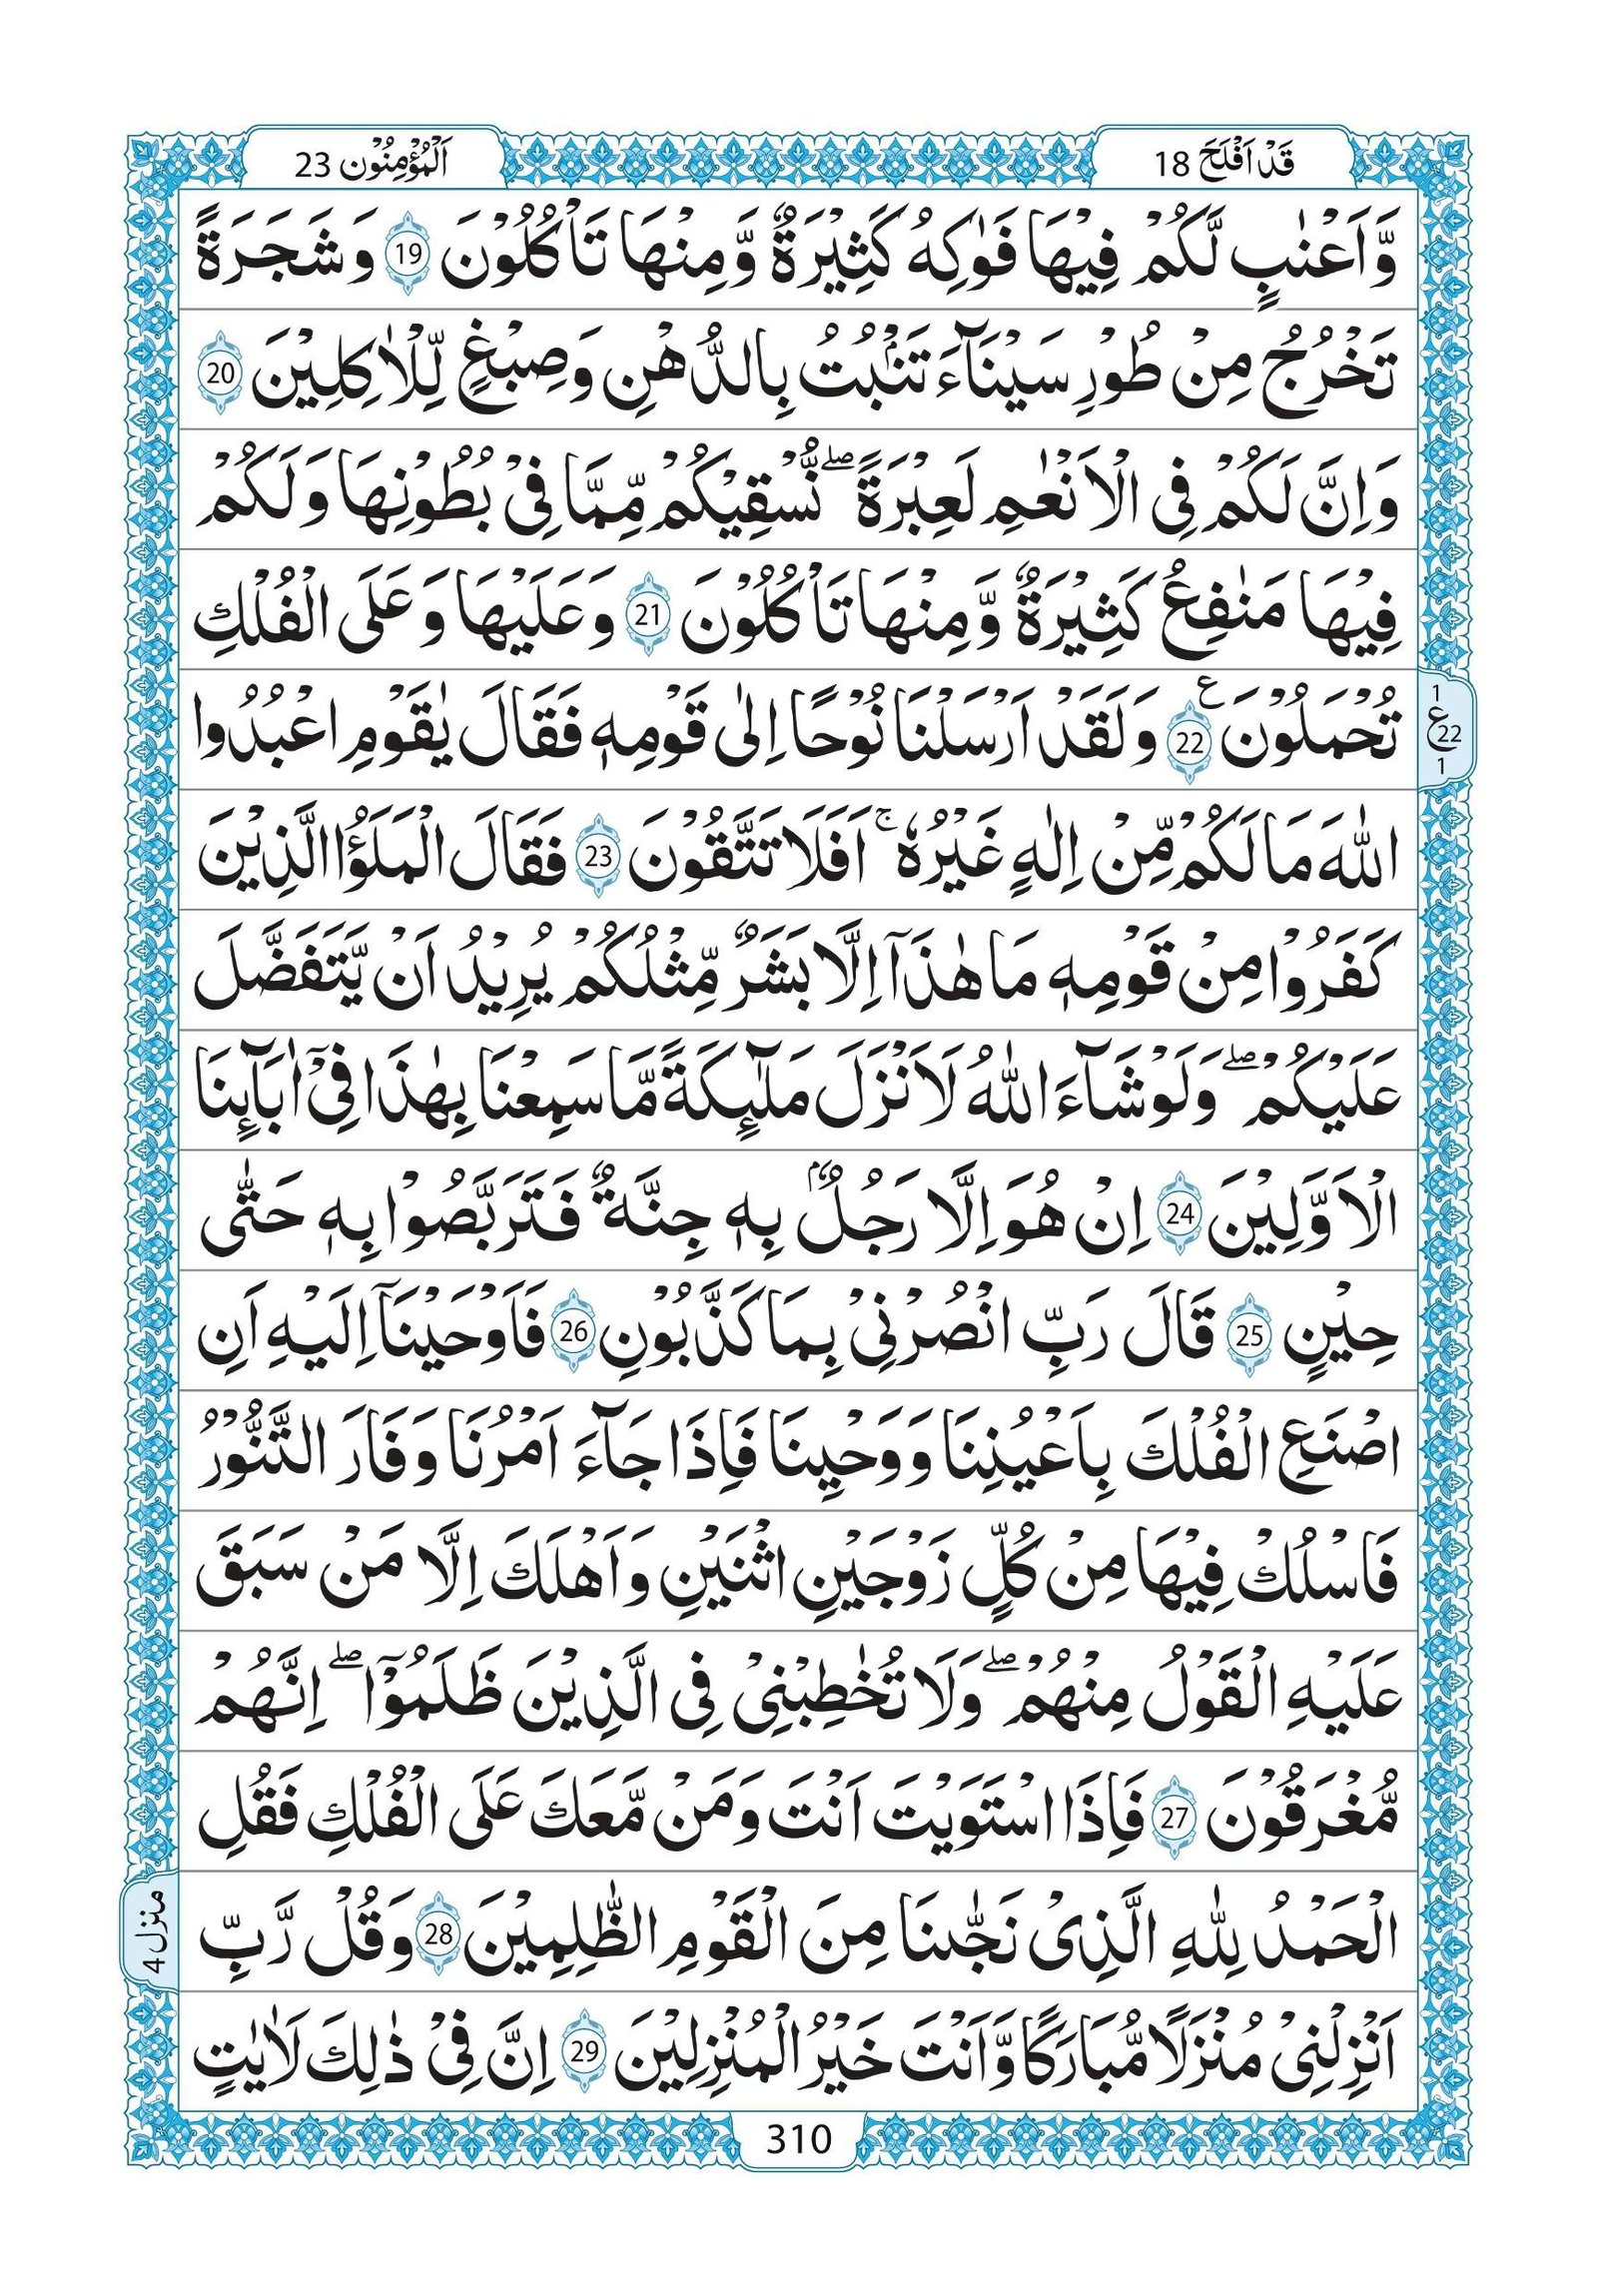 قَدْ اَفْلَحَ 18
اَلْمُؤْمِنُوْن 23
وَّاَعْنٰبٍ لَّكُمْ فِيْهَا فَوٰكِهُ كَثِيْرَةٌ وَّمِنْهَا تَاْكُلُوْنَ 19 وَشَجَرَةً
تَخْرُجُ مِنْ طُوْرِ سَيْنَآءَ تَنْۢبُتُ بِالدُّهْنِ وَصِبْغٍ لِّلْاٰكِلِيْنَ 20
وَاِنَّ لَكُمْ فِى الْاَنْعٰمِ لَعِبْرَةً ۖ نُّسْقِيْكُمْ مِّمَّا فِىْ بُطُوْنِهَا وَلَكُمْ
فِيْهَا مَنٰفِعُ كَثِيْرَةٌ وَّمِنْهَا تَاْكُلُوْنَ 21 وَعَلَيْهَا وَعَلَى الْفُلْكِ
تُحْمَلُوْنَ ع 22 وَلَقَدْ اَرْسَلْنَا نُوْحًا اِلٰى قَوْمِهٖ فَقَالَ يٰقَوْمِ اعْبُدُوا
1
ع 22
1
اللّٰهَ مَا لَكُمْ مِّنْ اِلٰهٍ غَيْرُهٗ ۚ اَفَلَا تَتَّقُوْنَ 23 فَقَالَ الْمَلَؤُا الَّذِيْنَ
كَفَرُوْا مِنْ قَوْمِهٖ مَا هٰذَآ اِلَّا بَشَرٌ مِّثْلُكُمْ يُرِيْدُ اَنْ يَّتَفَضَّلَ
عَلَيْكُمْ ۖ وَلَوْ شَآءَ اللّٰهُ لَاَنْزَلَ مَلٰٓئِكَةً مَّا سَمِعْنَا بِهٰذَا فِىْٓ اٰبَآئِنَا
الْاَوَّلِيْنَ 24 اِنْ هُوَ اِلَّا رَجُلٌۢ بِهٖ جِنَّةٌ فَتَرَبَّصُوْا بِهٖ حَتّٰى
حِيْنٍ 25 قَالَ رَبِّ انْصُرْنِىْ بِمَا كَذَّبُوْنِ 26 فَاَوْحَيْنَآ اِلَيْهِ اَنِ
اصْنَعِ الْفُلْكَ بِاَعْيُنِنَا وَوَحْيِنَا فَاِذَا جَآءَ اَمْرُنَا وَفَارَ التَّنُّوْرُ
فَاسْلُكْ فِيْهَا مِنْ كُلٍّ زَوْجَيْنِ اثْنَيْنِ وَاَهْلَكَ اِلَّا مَنْ سَبَقَ
عَلَيْهِ الْقَوْلُ مِنْهُمْ ۖ وَلَا تُخٰطِبْنِىْ فِى الَّذِيْنَ ظَلَمُوْٓا ۖ اِنَّهُمْ
مُّغْرَقُوْنَ 27 فَاِذَا اسْتَوَيْتَ اَنْتَ وَمَنْ مَّعَكَ عَلَى الْفُلْكِ فَقُلِ
الْحَمْدُ لِلّٰهِ الَّذِىْ نَجّٰىنَا مِنَ الْقَوْمِ الظّٰلِمِيْنَ 28 وَقُلْ رَّبِّ
منزل 4
اَنْزِلْنِىْ مُنْزَلًا مُّبَارَكًا وَّاَنْتَ خَيْرُ الْمُنْزِلِيْنَ 29 اِنَّ فِىْ ذٰلِكَ لَاٰيٰتٍ
310